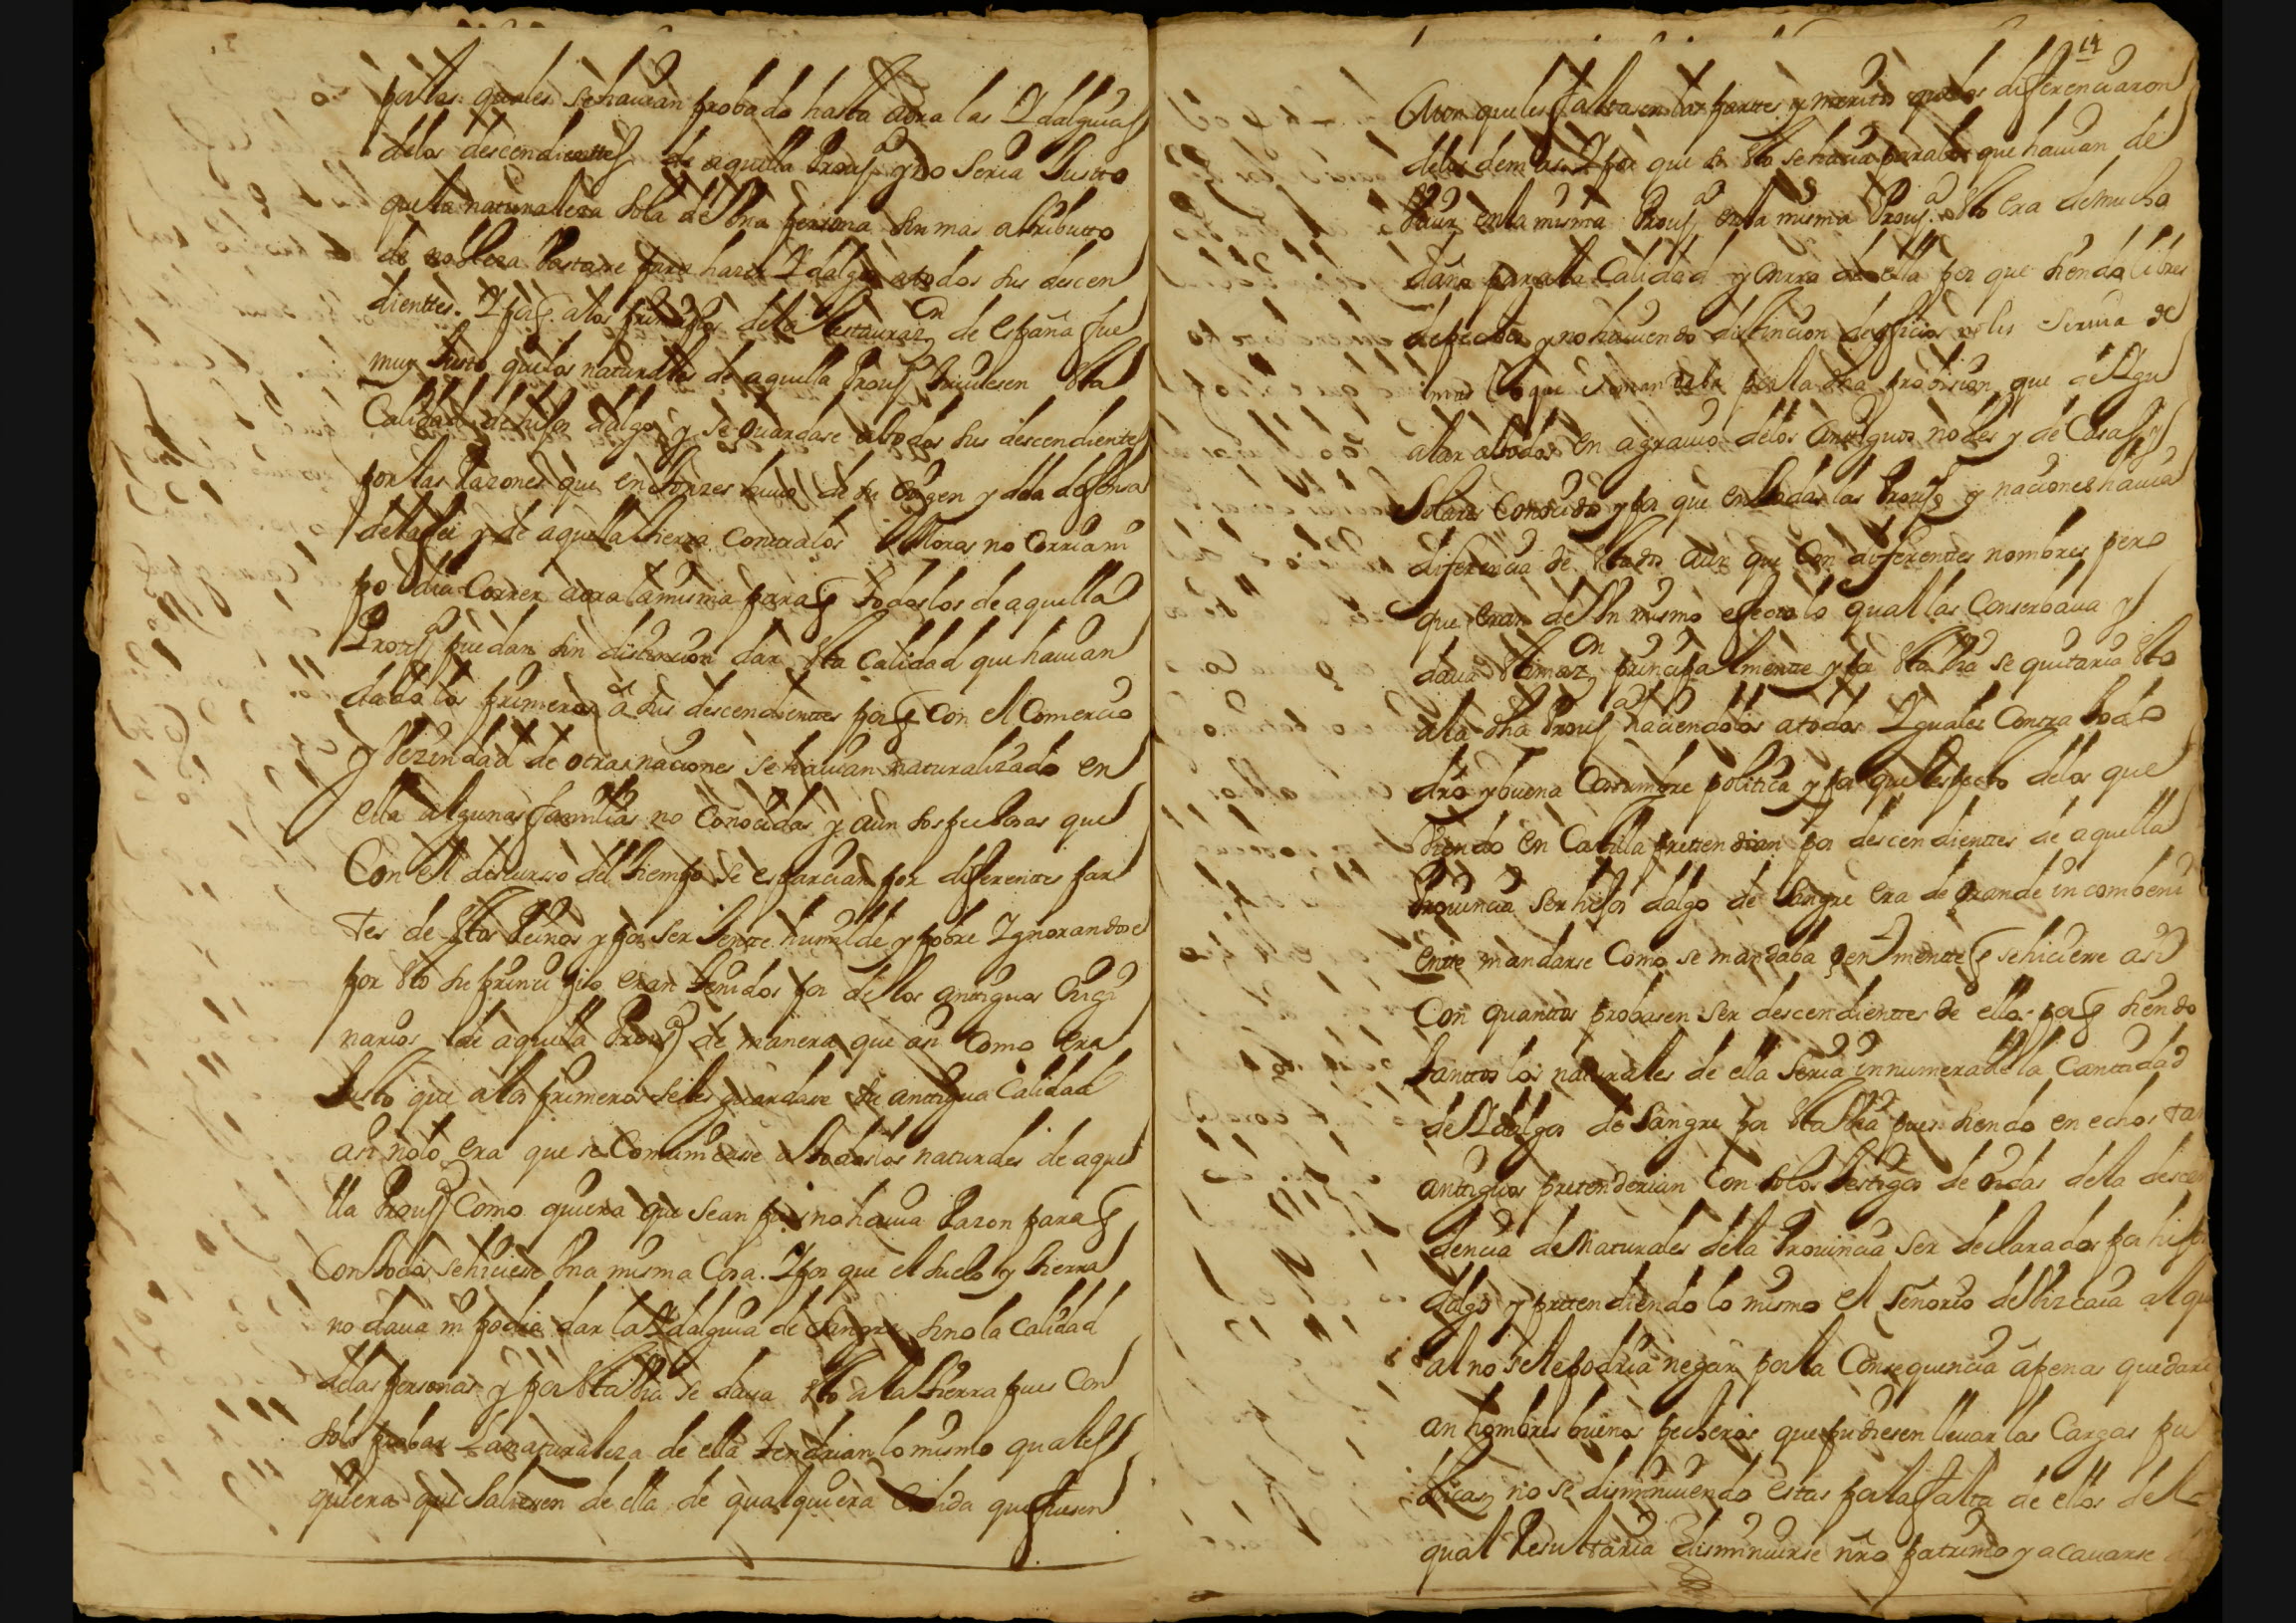 por las quales se hauian probado hasta aora las Ydalguias
de los descendientes de aquella Prouª y no seria Justo
que la naturaleza sola de Vna persona sin mas atributto
de nobleza bastasse para hazer Ydalgos a todos sus descen
dienttes. Y porq. a los prinzipios de la Restaurazon de españa fue
muy Justo que los naturales de aquella Prouª tuuiesen esta
Calidad de hijos dalgo y se guardase a todos sus descendientes
por las Razones que entonzes huuo de su origen y dela defensa
de la fee y de aquella tierra contra los Moros no corria ni
podia Correr aora la misma para q todos los de aquella
Prouª puedan sin distincion dar esta Calidad que hauian
dado los primeros â sus descendienttes por q con el Comercio
y Vezindad de otras naciones se hauian naturalizado en
ella algunas familias no conocidas y aun sospechosas que
Con el discurso del tiempo se esparcian por diferentes par
tes de estos Reinos y por ser Jente humilde y pobre Ygnorandose
por esto su principio eran tenidos por de los antiguos origi
narios de aquella Prouª de manera que asi como era
Justo que a los primeros se les guardase su antigua Calidad
asi no lo era que se Comunicasse a todos los naturales de aque
lla Prouª como quiera que sean pues no hauia Razon para q
Con todos se hiciesse Vna misma Cosa. Y por que el suelo y tierra
no daua ni podia dar la Ydalguia de Sangre sino la Calidad
de las personas y por esta Via se daua esto a la tierra pues con
solo probar La naturaleza de ella tendrian lo mismo quales
quiera que saliesen de ella de qualquiera Calida que fuesen
14
Aun que les faltasen las partes y meritos que los diferenciaron
de los demas. Y por que si esto se hacia para los que hauian de
Viuir en la misma Prouª en la misma Prouª esto era de mucho
daño para la Calidad y onrra de ella por que siendo libres
de pechos y no hauiendo distincion de oficios no les seruia de
mas lo que se mandaba por la dha probision que de Ygu
alar a todos en agrauio de los antiguos nobles y de Casas y
Solares Conocidos y por que en todas las Prouªs y naciones hauia
diferencia de estado aun que Con diferentes nombres pero
que eran de Vn mismo efecto lo qual las Conserbaua y
daua estimazon principalmentte y por esta Via se quitaria esto
a la dha Prouª haciendolos a todos Yguales Contra todo
dro y buena Costumbre politica y por que Respecto de los que
Viendo en Castilla prettendian por descendienttes de aquella
Prouincia ser hijos dalgo de Sangre era de grande incombeni
ente mandarse Como se mandaba genlmentte q se hiciesse asi
Con quanttos probasen ser descendienttes de ella. por q siendo
tanttos los naturales de ella seria innumerable la Cantidad
de Ydalgos de Sangre por esta Via pues siendo en echos tan
antiguos pretenderian Con solos testigos de oidas de la descen
dencia de Naturales de la Prouincia ser declarados por hijos
dalgo y prittendiendo lo mismo el Señorio de Vizcaia al qu
al no se le podria negar por la Consequencia âpenas quedari
an hombres buenos pecheros que pudiesen lleuar las Cargas pu
blicas no se disminuiendo estas por la falta de ellos de lo
qual Resultaria disminuirse nro patrimo y acauarse